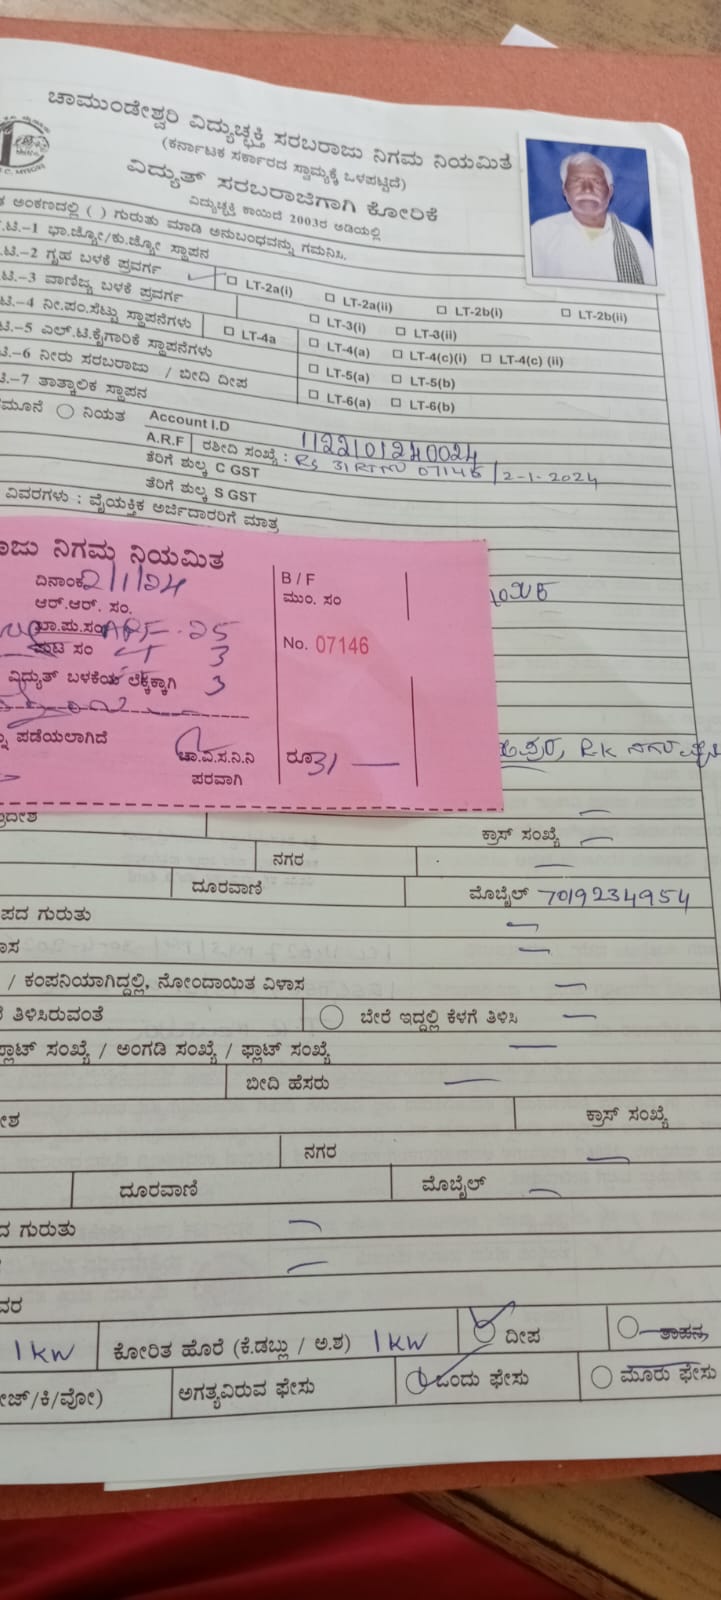 ಚಾಮುಂಡೇಶ್ವರಿ ವಿದ್ಯುಚ್ಛಕ್ತಿ ಸರಬರಾಜು ನಿಗಮ ನಿಯಮಿತ
(ಕರ್ನಾಟಕ ಸರ್ಕಾರದ ಸ್ವಾಮ್ಯಕ್ಕೆ ಒಳಪಟ್ಟಿದೆ)
ವಿದ್ಯುತ್ ಸರಬರಾಜಿಗಾಗಿ ಕೋರಿಕೆ
ವಿದ್ಯುಚ್ಛಕ್ತಿ ಕಾಯಿದೆ 2003ರ ಅಡಿಯಲ್ಲಿ
ಅಂಕಣದಲ್ಲಿ ( ) ಗುರುತು ಮಾಡಿ ಅನುಬಂಧವನ್ನು ಗಮನಿಸಿ.
ಟಿ.-1 ಭಾ.ಜ್ಯೋ/ಕು.ಜ್ಯೋ ಸ್ಥಾಪನ
ಟಿ.-2 ಗೃಹ ಬಳಕೆ ಪ್ರವರ್ಗ LT-2a(i) LT-2a(ii) LT-2b(i) LT-2b(ii)
ಟಿ.-3 ವಾಣಿಜ್ಯ ಬಳಕೆ ಪ್ರವರ್ಗ LT-3(i) LT-3(ii)
ಟಿ.-4 ನೀ.ಪಂ.ಸೆಟ್ಟು ಸ್ಥಾಪನೆಗಳು LT-4a LT-4(a) LT-4(c)(i) LT-4(c) (ii)
ಟಿ.-5 ಎಲ್.ಟಿ.ಕೈಗಾರಿಕೆ ಸ್ಥಾಪನೆಗಳು LT-5(a) LT-5(b)
ಟಿ.-6 ನೀರು ಸರಬರಾಜು / ಬೀದಿ ದೀಪ LT-6(a) LT-6(b)
ಟಿ.-7 ತಾತ್ಕಾಲಿಕ ಸ್ಥಾಪನ
ನಿಯತ Account I.D 1122101240024
A.R.F ರಶೀದಿ ಸಂಖ್ಯೆ : 07146 / 2-1-2024
ತೆರಿಗೆ ಶುಲ್ಕ C GST
ತೆರಿಗೆ ಶುಲ್ಕ S GST
ವಿವರಗಳು : ವೈಯಕ್ತಿಕ ಅರ್ಜಿದಾರರಿಗೆ ಮಾತ್ರ
ನಿಗಮ ನಿಯಮಿತ
ದಿನಾಂಕ 2/1/24 B / F
ಆರ್.ಆರ್. ಸಂ. ಮುಂ. ಸಂ
ಖಾ.ಪು.ಸಂ ARF-25
ಪುಟ ಸಂ 3 No. 07146
ವಿದ್ಯುತ್ ಬಳಕೆಯ ಲೆಕ್ಕಕ್ಕಾಗಿ 3
ಪಡೆಯಲಾಗಿದೆ
ಚಾ.ವಿ.ಸ.ನಿ.ನಿ ರೂ 31
ಪರವಾಗಿ
RK ನಗರ
ಕ್ರಾಸ್ ಸಂಖ್ಯೆ
ನಗರ
ದೂರವಾಣಿ ಮೊಬೈಲ್ 7019234954
ಗುರುತು
/ ಕಂಪನಿಯಾಗಿದ್ದಲ್ಲಿ, ನೋಂದಾಯಿತ ವಿಳಾಸ
ತಿಳಿಸಿರುವಂತೆ ಬೇರೆ ಇದ್ದಲ್ಲಿ ಕೆಳಗೆ ತಿಳಿಸಿ
ಪ್ಲಾಟ್ ಸಂಖ್ಯೆ / ಅಂಗಡಿ ಸಂಖ್ಯೆ / ಫ್ಲಾಟ್ ಸಂಖ್ಯೆ
ಬೀದಿ ಹೆಸರು
ಕ್ರಾಸ್ ಸಂಖ್ಯೆ
ನಗರ
ದೂರವಾಣಿ ಮೊಬೈಲ್
ಗುರುತು
1 KW ಕೋರಿತ ಹೊರೆ (ಕೆ.ಡಬ್ಲು / ಅ.ಶ) 1 KW ದೀಪ ತಾಪನ
ಅಗತ್ಯವಿರುವ ಫೇಸು ಒಂದು ಫೇಸು ಮೂರು ಫೇಸು